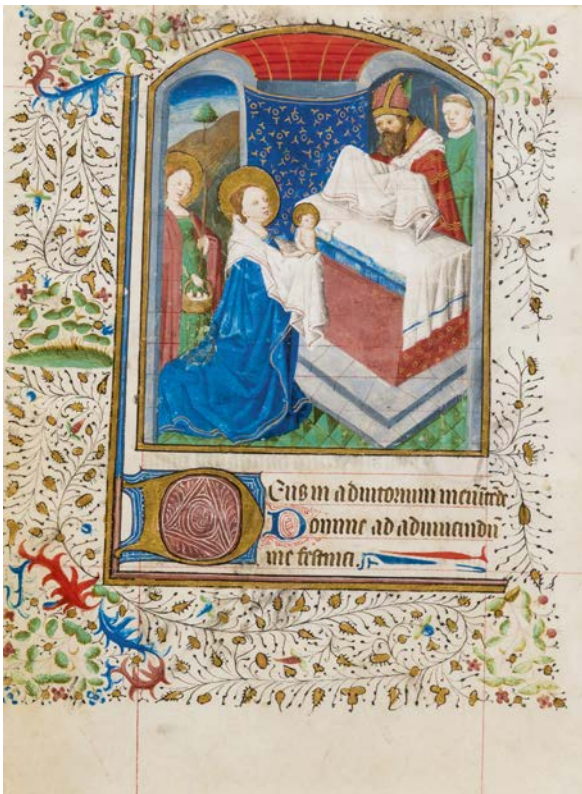 Deus in adiutorium meū ītēde
Domine ad adiuuandū
me festina